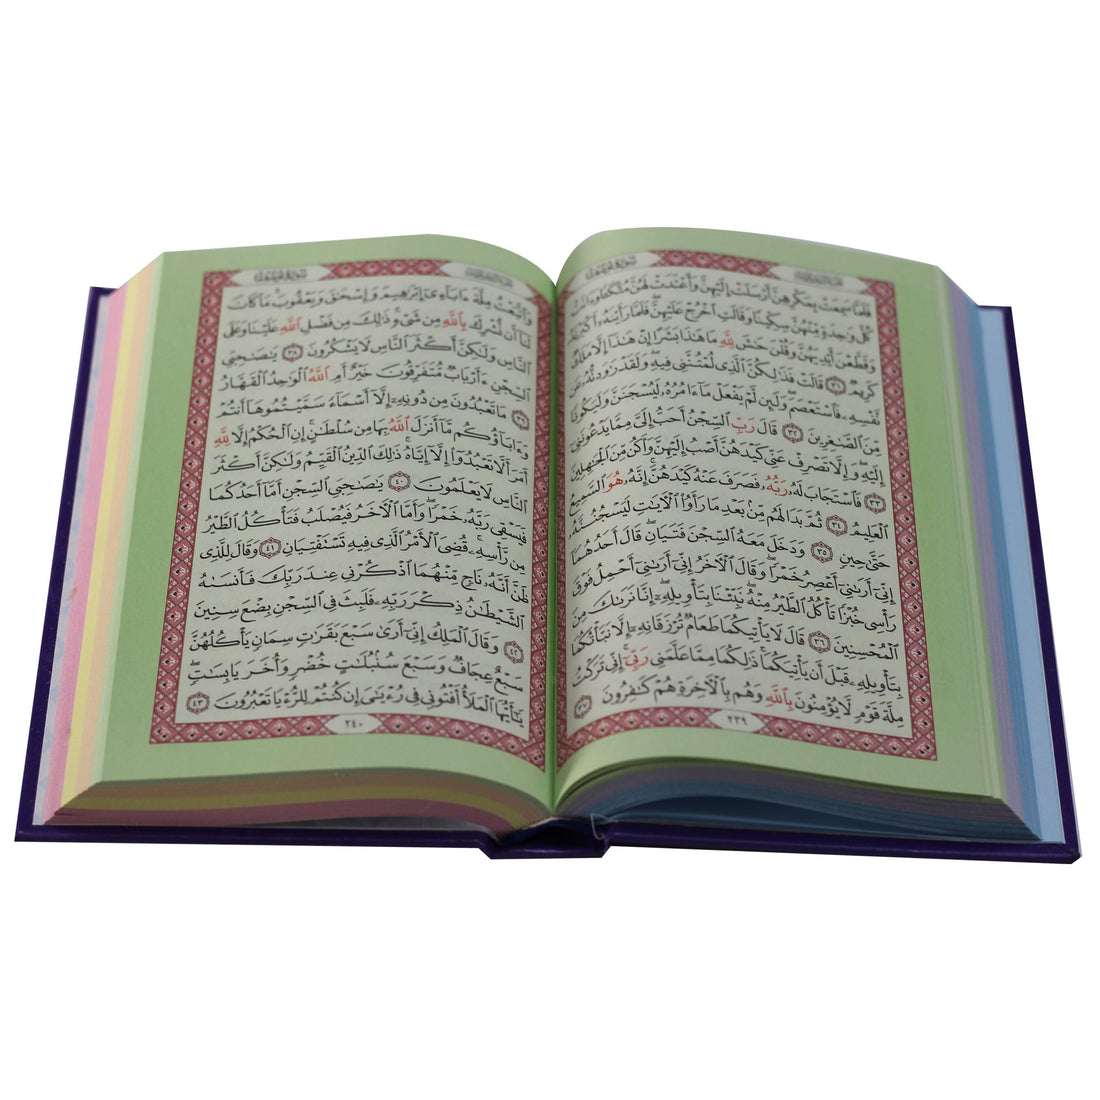 سورة يوسف
فَلَمَّا سَمِعَتْ بِمَكْرِهِنَّ أَرْسَلَتْ إِلَيْهِنَّ وَأَعْتَدَتْ لَهُنَّ مُتَّكَـًٔا وَءَاتَتْ
كُلَّ وَٰحِدَةٍ مِّنْهُنَّ سِكِّينًا وَقَالَتِ ٱخْرُجْ عَلَيْهِنَّ ۖ فَلَمَّا رَأَيْنَهُۥٓ أَكْبَرْنَهُۥ
وَقَطَّعْنَ أَيْدِيَهُنَّ وَقُلْنَ حَٰشَ لِلَّهِ مَا هَٰذَا بَشَرًا إِنْ هَٰذَآ إِلَّا مَلَكٌ
كَرِيمٌ ٣١ قَالَتْ فَذَٰلِكُنَّ ٱلَّذِى لُمْتُنَّنِى فِيهِ ۖ وَلَقَدْ رَٰوَدتُّهُۥ عَن
نَّفْسِهِۦ فَٱسْتَعْصَمَ ۖ وَلَئِن لَّمْ يَفْعَلْ مَآ ءَامُرُهُۥ لَيُسْجَنَنَّ وَلَيَكُونًا
مِّنَ ٱلصَّٰغِرِينَ ٣٢ قَالَ رَبِّ ٱلسِّجْنُ أَحَبُّ إِلَىَّ مِمَّا يَدْعُونَنِىٓ
إِلَيْهِ ۖ وَإِلَّا تَصْرِفْ عَنِّى كَيْدَهُنَّ أَصْبُ إِلَيْهِنَّ وَأَكُن مِّنَ ٱلْجَٰهِلِينَ
٣٣ فَٱسْتَجَابَ لَهُۥ رَبُّهُۥ فَصَرَفَ عَنْهُ كَيْدَهُنَّ ۚ إِنَّهُۥ هُوَ ٱلسَّمِيعُ
ٱلْعَلِيمُ ٣٤ ثُمَّ بَدَا لَهُم مِّنۢ بَعْدِ مَا رَأَوُا۟ ٱلْءَايَٰتِ لَيَسْجُنُنَّهُۥ
حَتَّىٰ حِينٍ ٣٥ وَدَخَلَ مَعَهُ ٱلسِّجْنَ فَتَيَانِ ۖ قَالَ أَحَدُهُمَآ
إِنِّىٓ أَرَىٰنِىٓ أَعْصِرُ خَمْرًا ۖ وَقَالَ ٱلْءَاخَرُ إِنِّىٓ أَرَىٰنِىٓ أَحْمِلُ فَوْقَ
رَأْسِى خُبْزًا تَأْكُلُ ٱلطَّيْرُ مِنْهُ ۖ نَبِّئْنَا بِتَأْوِيلِهِۦٓ ۖ إِنَّا نَرَىٰكَ مِنَ
ٱلْمُحْسِنِينَ ٣٦ قَالَ لَا يَأْتِيكُمَا طَعَامٌ تُرْزَقَانِهِۦٓ إِلَّا نَبَّأْتُكُمَا
بِتَأْوِيلِهِۦ قَبْلَ أَن يَأْتِيَكُمَا ۚ ذَٰلِكُمَا مِمَّا عَلَّمَنِى رَبِّىٓ ۚ إِنِّى تَرَكْتُ
مِلَّةَ قَوْمٍ لَّا يُؤْمِنُونَ بِٱللَّهِ وَهُم بِٱلْءَاخِرَةِ هُمْ كَٰفِرُونَ ٣٧
٢٣٩
سورة يوسف
وَٱتَّبَعْتُ مِلَّةَ ءَابَآءِىٓ إِبْرَٰهِيمَ وَإِسْحَٰقَ وَيَعْقُوبَ ۚ مَا كَانَ
لَنَآ أَن نُّشْرِكَ بِٱللَّهِ مِن شَىْءٍ ۚ ذَٰلِكَ مِن فَضْلِ ٱللَّهِ عَلَيْنَا وَعَلَى
ٱلنَّاسِ وَلَٰكِنَّ أَكْثَرَ ٱلنَّاسِ لَا يَشْكُرُونَ ٣٨ يَٰصَٰحِبَىِ
ٱلسِّجْنِ ءَأَرْبَابٌ مُّتَفَرِّقُونَ خَيْرٌ أَمِ ٱللَّهُ ٱلْوَٰحِدُ ٱلْقَهَّارُ
٣٩ مَا تَعْبُدُونَ مِن دُونِهِۦٓ إِلَّآ أَسْمَآءً سَمَّيْتُمُوهَآ أَنتُمْ
وَءَابَآؤُكُم مَّآ أَنزَلَ ٱللَّهُ بِهَا مِن سُلْطَٰنٍ ۚ إِنِ ٱلْحُكْمُ إِلَّا لِلَّهِ
أَمَرَ أَلَّا تَعْبُدُوٓا۟ إِلَّآ إِيَّاهُ ۚ ذَٰلِكَ ٱلدِّينُ ٱلْقَيِّمُ وَلَٰكِنَّ أَكْثَرَ
ٱلنَّاسِ لَا يَعْلَمُونَ ٤٠ يَٰصَٰحِبَىِ ٱلسِّجْنِ أَمَّآ أَحَدُكُمَا
فَيَسْقِى رَبَّهُۥ خَمْرًا ۖ وَأَمَّا ٱلْءَاخَرُ فَيُصْلَبُ فَتَأْكُلُ ٱلطَّيْرُ
مِن رَّأْسِهِۦ ۚ قُضِىَ ٱلْأَمْرُ ٱلَّذِى فِيهِ تَسْتَفْتِيَانِ ٤١ وَقَالَ لِلَّذِى
ظَنَّ أَنَّهُۥ نَاجٍ مِّنْهُمَا ٱذْكُرْنِى عِندَ رَبِّكَ فَأَنسَىٰهُ
ٱلشَّيْطَٰنُ ذِكْرَ رَبِّهِۦ فَلَبِثَ فِى ٱلسِّجْنِ بِضْعَ سِنِينَ
٤٢ وَقَالَ ٱلْمَلِكُ إِنِّىٓ أَرَىٰ سَبْعَ بَقَرَٰتٍ سِمَانٍ يَأْكُلُهُنَّ
سَبْعٌ عِجَافٌ وَسَبْعَ سُنۢبُلَٰتٍ خُضْرٍ وَأُخَرَ يَابِسَٰتٍ ۖ
يَٰٓأَيُّهَا ٱلْمَلَأُ أَفْتُونِى فِى رُءْيَٰىَ إِن كُنتُمْ لِلرُّءْيَا تَعْبُرُونَ ٤٣
٢٤٠